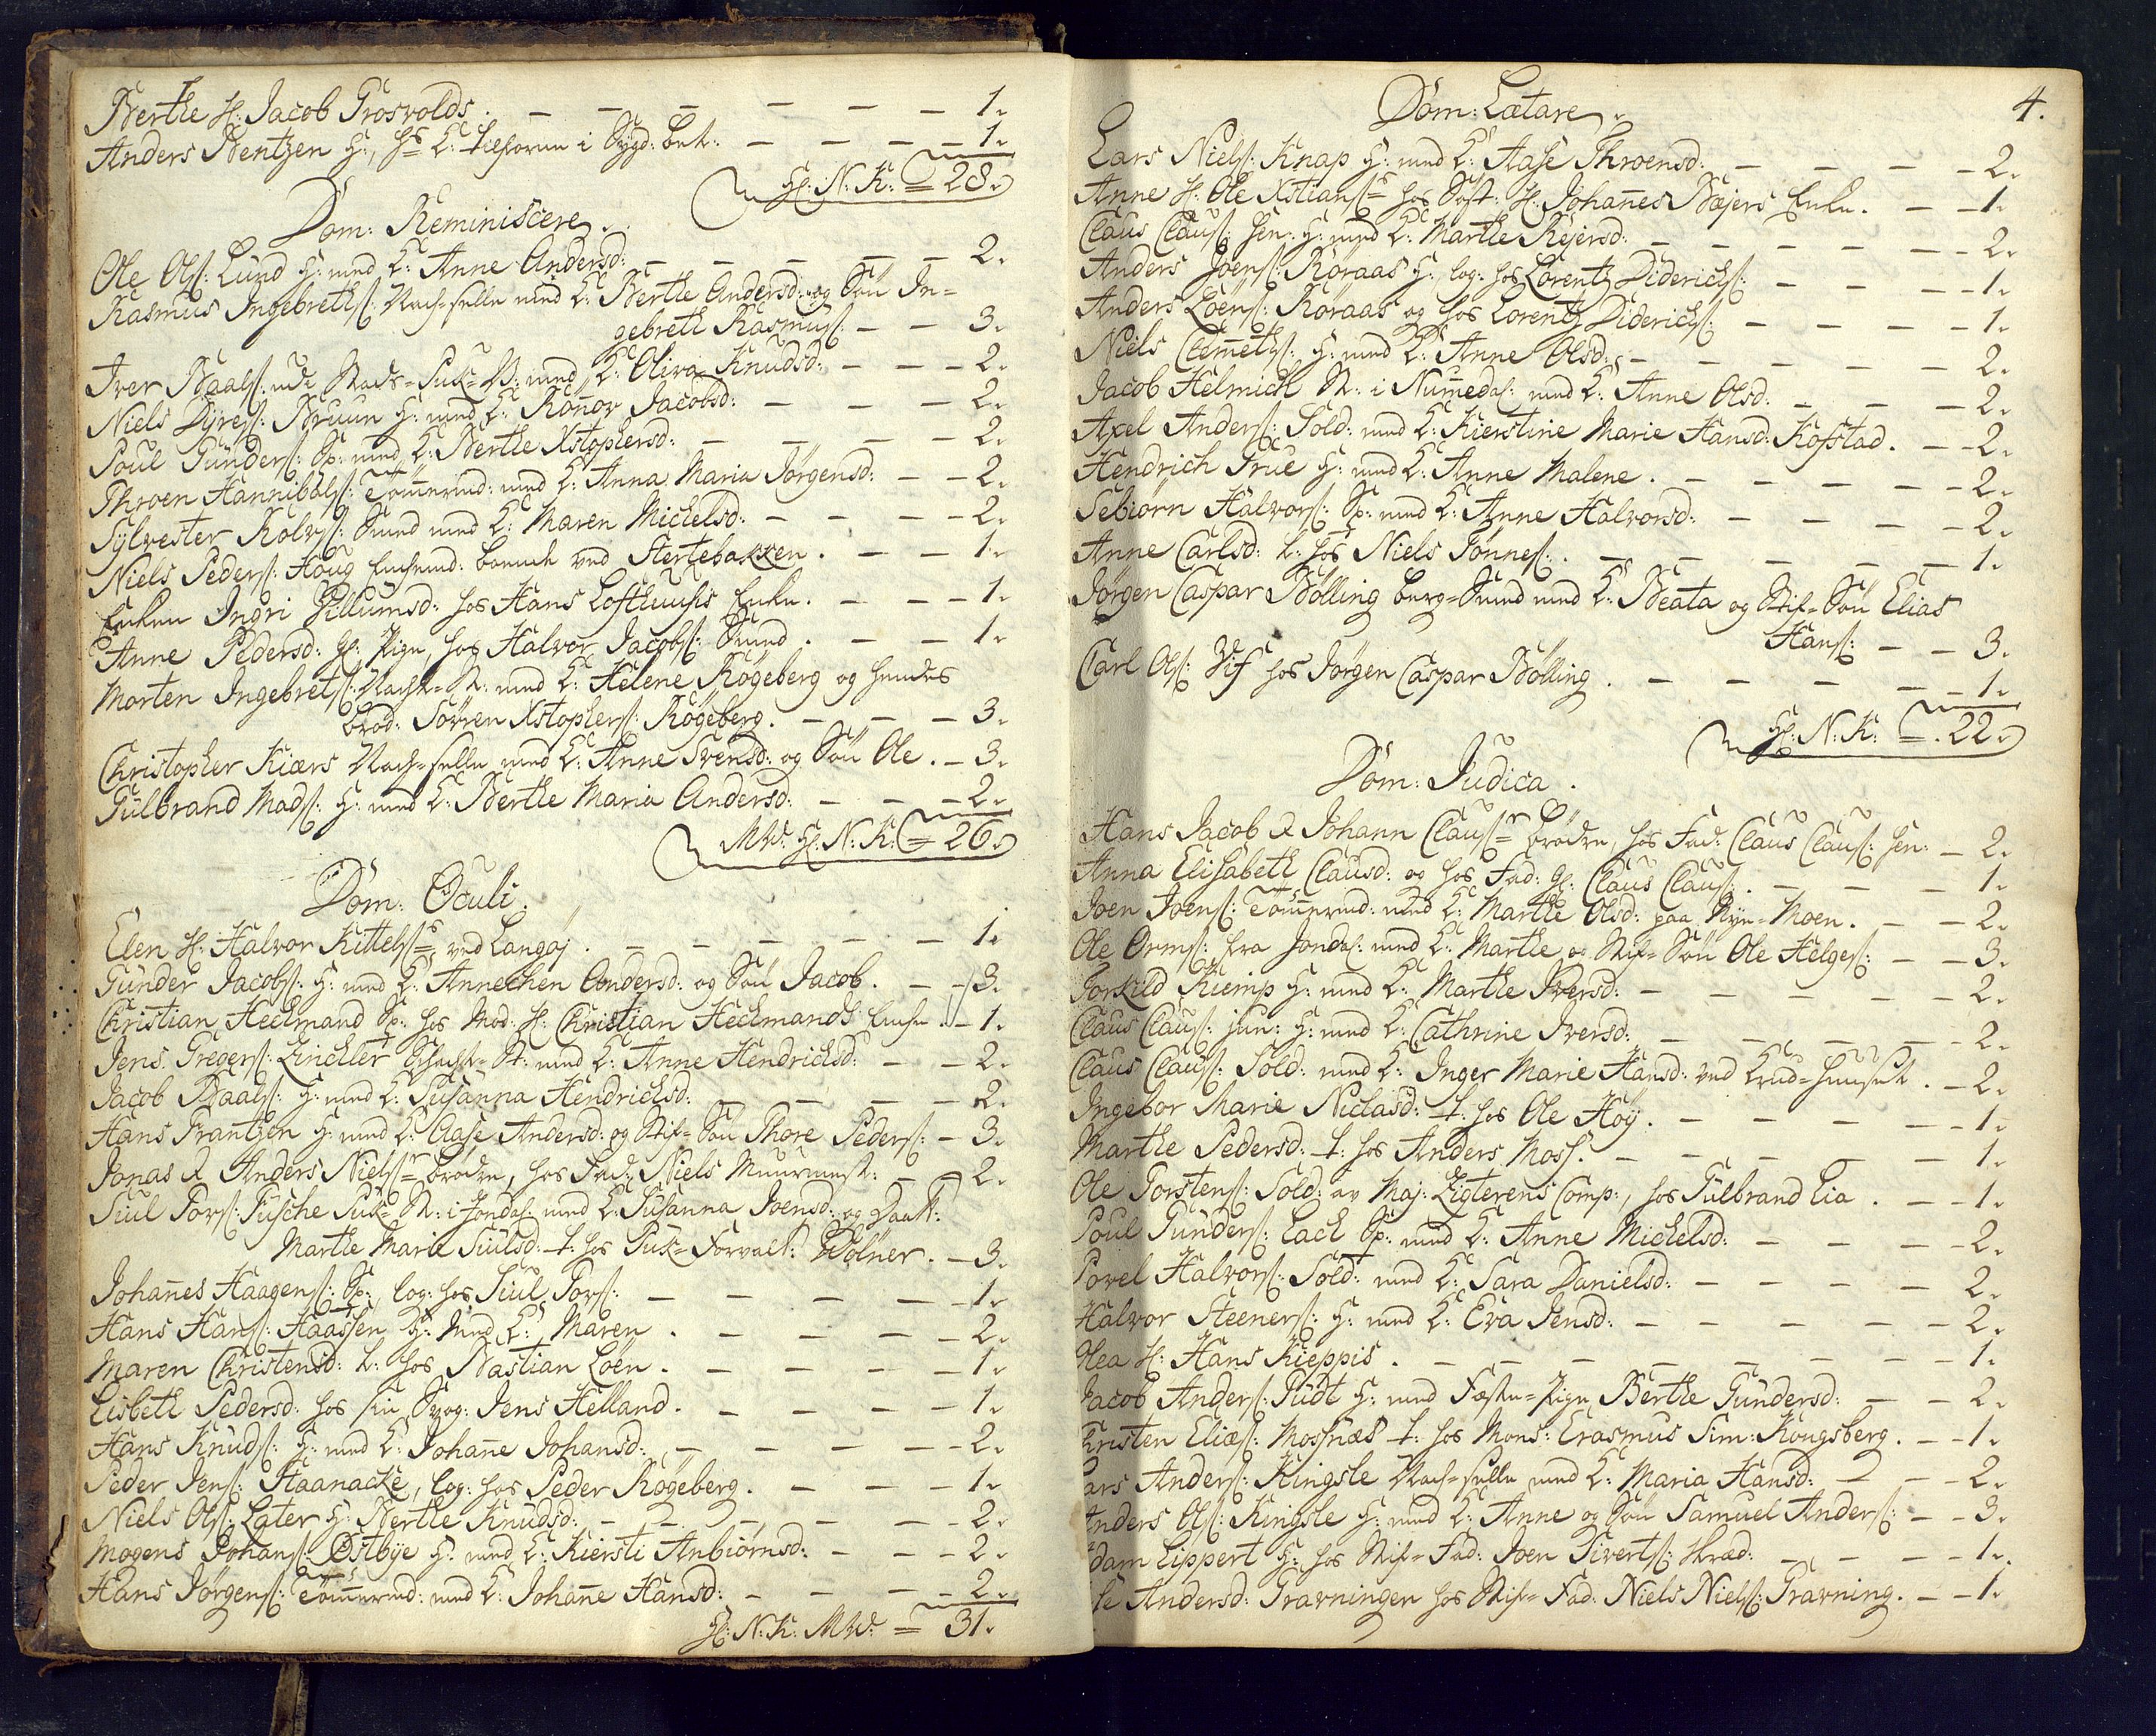 Berthe Sl: Jacob Grosvolds. — — — — — — 1.
Anders Bentzen H:, hs K: tilforne i Sygd: bet: — — — — 1.
Hl: N: K: = 28.
Dom: Reminiscere.
Ole Ols: Lund H: med K: Anne Andersd: — — — — — 2.
Rasmus Ingebreths: Vach-selle med K: Berthe Andersd: og Søn In-
gebreth Rasmuss: — — 3.
Iver Paals: Puk-B: med K: Oliva Knudsd: — — — 2.
Niels Dÿres: Bruun H: med K: Rønnov Jacobsd: — — — 2.
Poul Gunders: Op: med K: Berthe Xstophersd: — — — 2.
Throen Hannibals: Tømermd: med K: Anna Maria Jörgensd: — — 2.
Sÿlvester Rolvs: Smed med K: Maren Michelsd: — — — — 2.
Niels Peders: Houg Enkemd: boende ved Stertebakken. — — 1.
Enken Ingri Gillumsd: hos Hans Lofthuusis Enke. — — — 1.
Anne Pedersd: gl: Pige, hos Halvor Jacobs: Smed. — — — 1.
Morten Ingebrets: Vacht-M: med K: Helene Rögeberg og hendes
brod: Sörren Xstophers: Rögeberg. — — — — 3.
Christopher Kiærs Vach-selle med K: Anne Svensd: og Søn Ole. — 3.
Gulbrand Mads: H: med K: Berthe Maria Andersd: — — — 2.
MW: Hl: N: K: = 26.
Dom: Oculi.
Elen Sl: Halvor Kittels: ved Langøj. — — — — — 1.
Gunder Jacobs: H: med K: Annechen Andersd: og Søn Jacob. — — 3.
Christian Heckmand Op: hos Mod: Sl: Christian Heckmands Enke. — 1.
Jens Gregers: Zinckler Schacht-St: med K: Anne Hendrichsd: — — 2.
Jacob Paals: H: med K: Susanna Hendrichsd: — — — — 2.
Hans Frantzen H: med K: Aase Andersd: og Stif-Søn Thore Peders: — 3.
Jonas & Anders Niels: brødre, hos Fad: Niels Muurmest: — — 2.
Siul Tors: Fusche Puk-St: i Jondal: med K: Susanna Joensd: og Daatt:
Marthe Maria Siulsd: t: hos Puk-Forvalt: Wolner. — 3.
Johannes Haagens: Op:, log: hos Siul Tors: — — — — 1.
Hans Hans: Haassen H: med K: Maren. — — — — — 2.
Maren Christensd: t: hos Bastian Loen. — — — — — 1.
Lisbeth Pedersd: hos sin Svog: Jens Helland. — — — — 1.
Hans Knuds: H: med K: Johanne Johansd: — — — — 2.
Peder Jens: Haanacke, log: hos Peder Rögeberg. — — — 1.
Niels Ols: Later H: Berthe Knudsd: — — — — — 2.
Mogens Johans: Østbÿe H: med K: Kiersti Anbiørnsd: — — — 2.
Hans Jørgens: Tømermd: med K: Johanne Hansd: — — — — 2.
Hl: N: K: MW: = 31.
4.
Dom: Lætare.
Lars Niels: Knap H: med K: Aase Throensd: — — — — 2.
Anne Sl: Ole Xstians: hos Søst: Sl: Johannes Bæjers Enke. — — 1.
Claus Claus: sen: H: med K: Marthe Rejersd: — — — — 2.
Anders Joens: Röraas H:, log: hos Lorentz Diderichs: — — — 1.
Anders Loens: Röraas og hos Lorentz Diderichs: — — — — 1.
Niels Clemets: H: med K: Anne Olsd: — — — — — 2.
Jacob Helmich M: i Numedal: med K: Anne Olsd: — — — 2.
Axel Anders: Sold: med K: Kierstine Marie Hansd: Kofstad. — — 2.
Hendrich True H: med K: Anne Malene. — — — — — 2.
Sebiørn Halvors: Op: med K: Anne Halvorsd: — — — — 2.
Anne Carlsd: t: hos Niels Tønnes: — — — — — 1.
Jørgen Caspar Bölling berg-Smed med K: Beata og Stif-Søn Elias
Hans: — — 3.
Carl Ols: Vif hos Jørgen Caspar Bölling. — — — — — 1.
Hl: N: K: = 22.
Dom: Judica.
Hans Jacob & Johann Claus: brødre, hos Fad: Claus Claus: sen: — 2.
Anna Elisabeth Clausd: og hos Fad: gl: Claus Claus: — — — 1.
Joen Joens: Tømermd: med K: Marthe Olsd: paa Nÿe-Moen. — — 2.
Ole Orms: fra Jondal: med K: Marthe og Stif-Søn Ole Helges: — — 3.
Torkild Kiemp H: med K: Marthe Iversd: — — — — — 2.
Claus Claus: jun: H: med K: Cathrine Iversd: — — — — 2.
Claus Claus: Sold: med K: Inger Marie Hansd: ved Krud-huuset. — 2.
Ingebor Marie Niclasd: t: hos Ole Høÿ. — — — — — 1.
Marthe Pedersd: t: hos Anders Moss. — — — — — 1.
Ole Torstens: Sold: av Maj: Zigterens Comp:, hos Gulbrand Lia. — — 1.
Poul Gunders: Lach Op: med K: Anne Michelsd: — — — — 2.
Povel Halvors: Sold: med K: Sara Danielsd: — — — — 2.
Halvor Steeners: H: med K: Eva Jensd: — — — — — 2.
Olea Sl: Hans Kieppis. — — — — — — — 1.
Jacob Anders: Gudt H: med Fæste-Pige Berthe Gundersd: — — 2.
Kristen Elias: Mosnæs t: hos Mons: Erasmus Sim: Kongsberg. — — 1.
Lars Anders: Kingsle Vach-selle med K: Maria Hansd: — — — 2.
Anders Ols: Kingsle H: med K: Anne og Søn Samuel Anders: — — 3.
Adam Lippert H: hos Stif-Fad: Joen Siverts: Skræd: — — — 1.
Andersd: Gravningen hos Stif-Fad: Niels Niels: Gravning. — — 1.